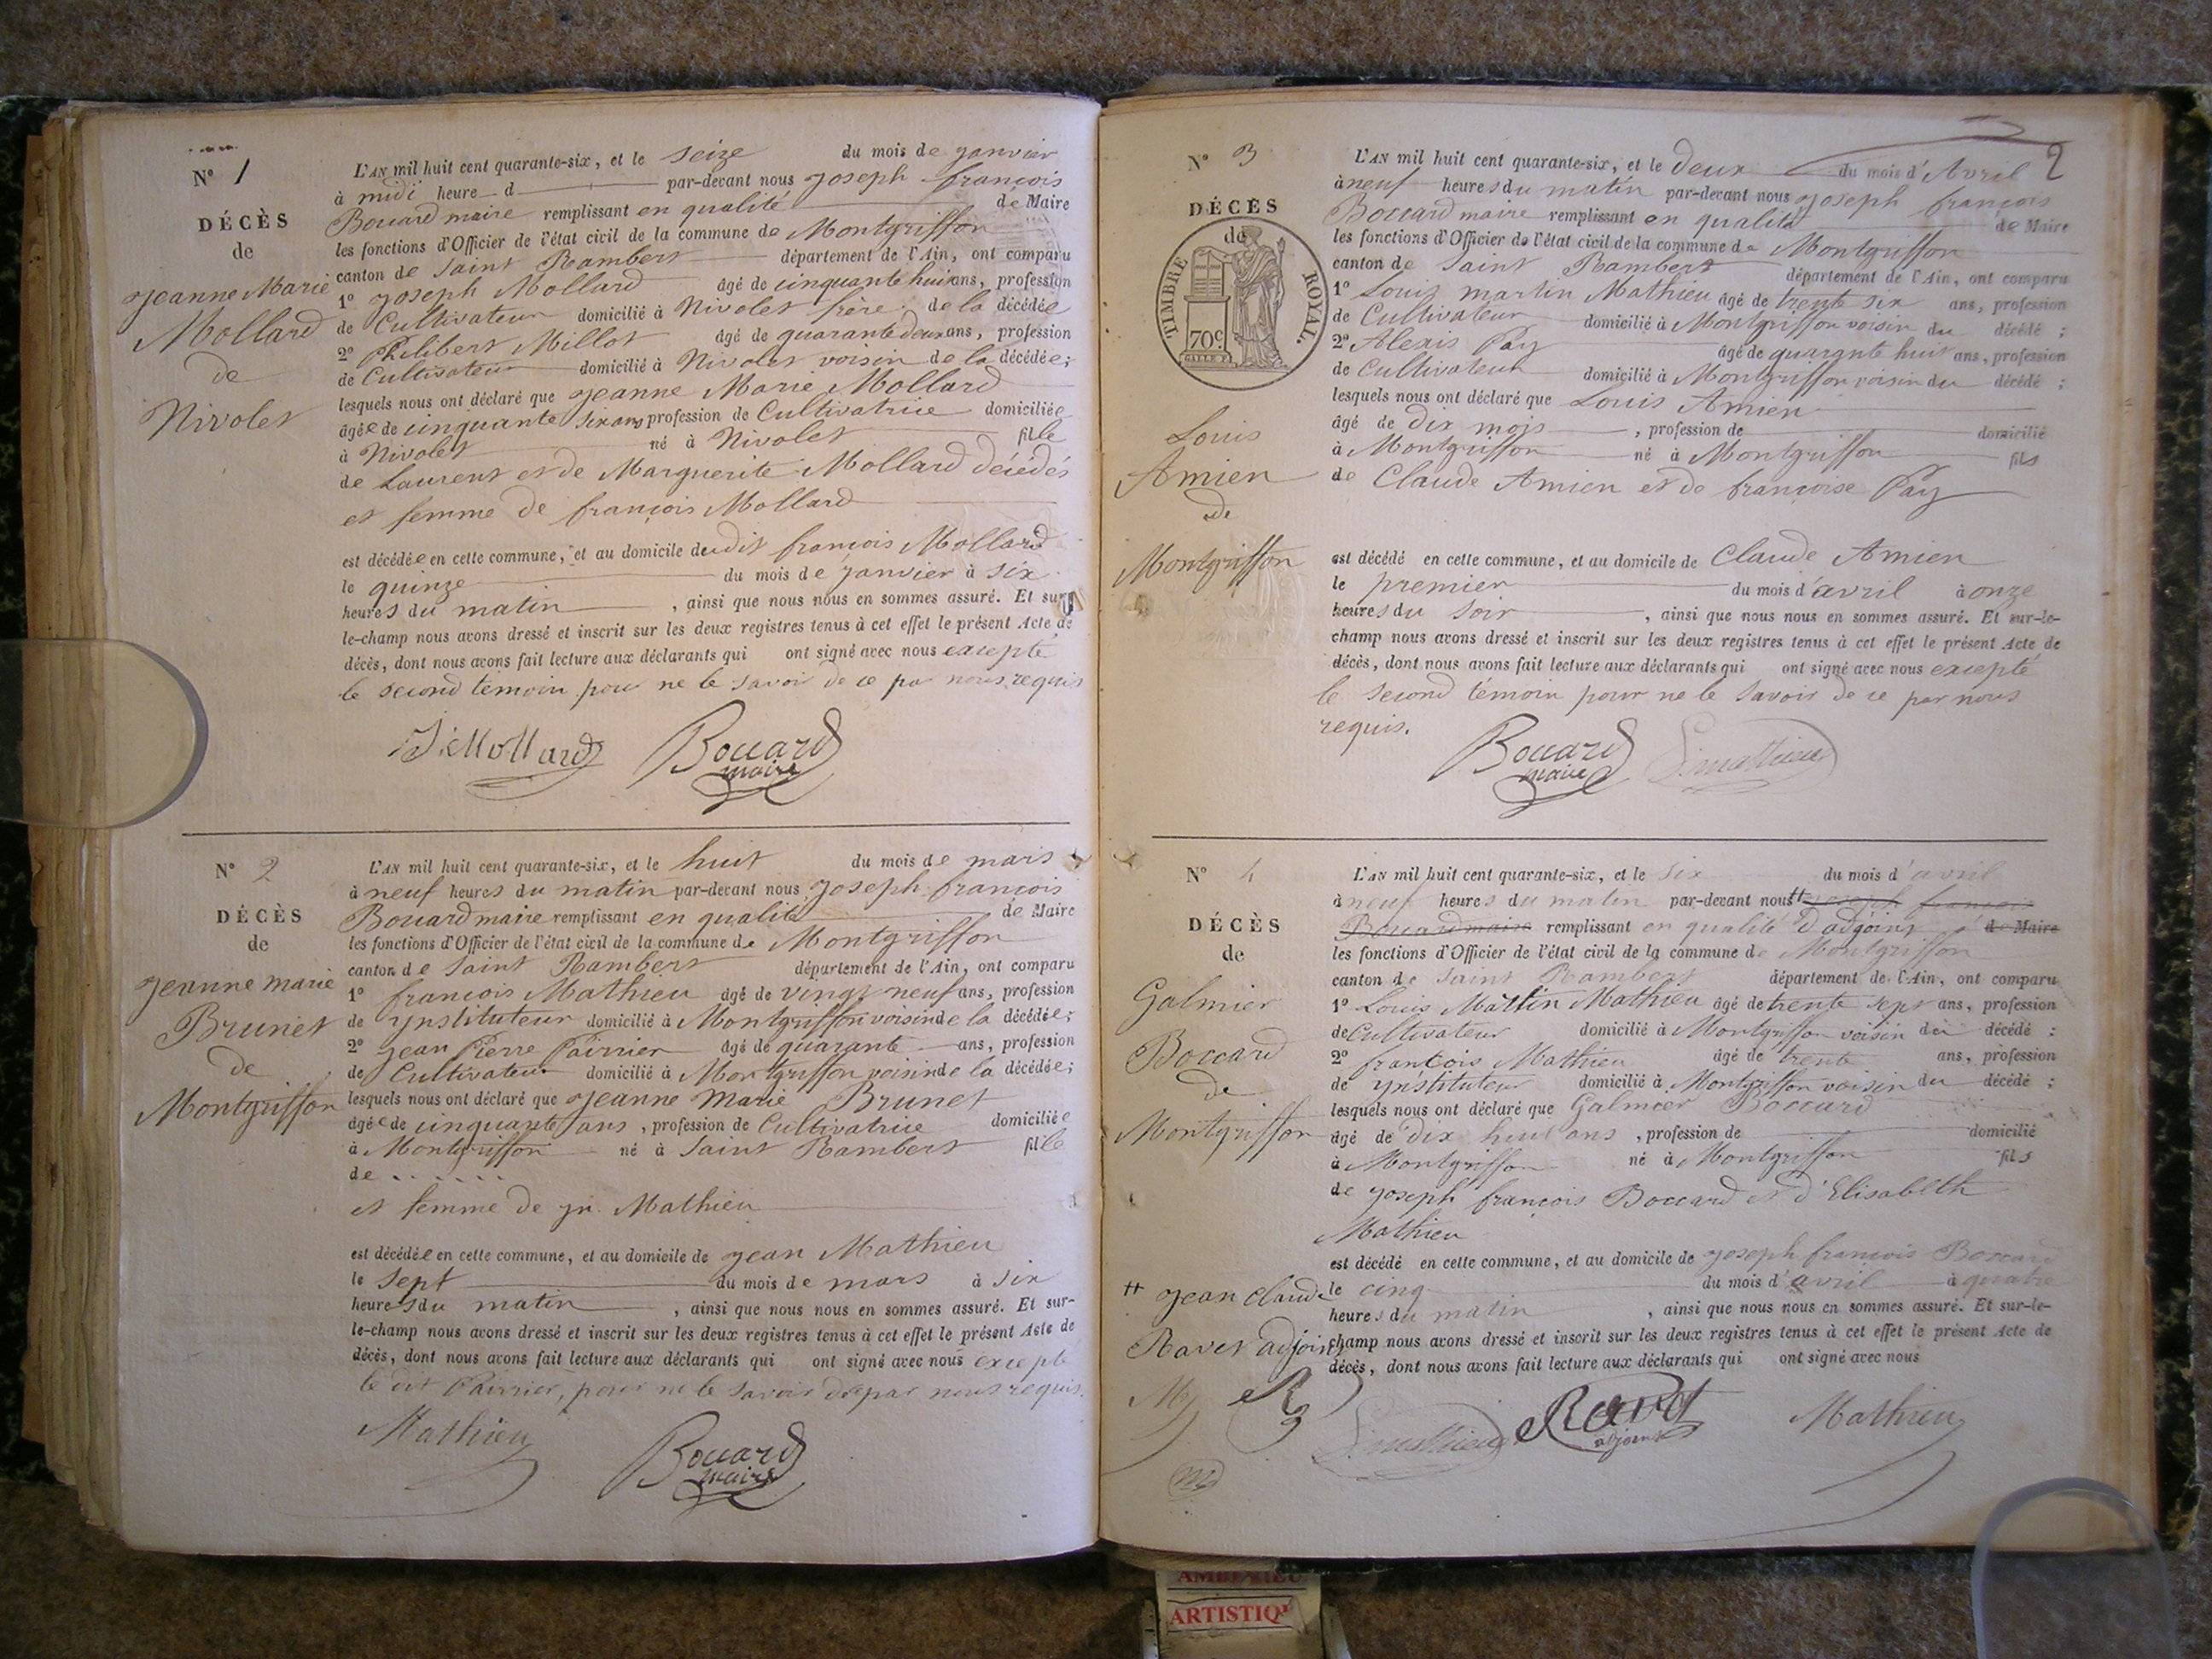 N° 1
DÉCÈS
de
Jeanne Marie
Mollard
de
Nivolet
L'AN mil huit cent quarante-six, et le seize du mois de janvier
à midi heure d par-devant nous joseph françois
Boccard maire remplissant en qualité de Maire
les fonctions d'Officier de l'état civil de la commune de Montgriffon
canton de Saint Rambert département de l'Ain, ont comparu
1° Joseph Mollard âgé de cinquante huit ans, profession
de Cultivateur domicilié à Nivolet frère de la décédée
2° Philibert Millot âgé de quarante deux ans, profession
de Cultivateur domicilié à Nivolet voisin de la décédée;
lesquels nous ont déclaré que Jeanne Marie Mollard
âgée de cinquante six ans profession de Cultivatrice domiciliée
à Nivolet né à Nivolet fille
de Laurent et de Marguerite Mollard décédés
et femme de françois Mollard
est décédée en cette commune, et au domicile dudit françois Mollard
le quinze du mois de janvier à six
heures du matin, ainsi que nous nous en sommes assuré. Et sur-
le-champ nous avons dressé et inscrit sur les deux registres tenus à cet effet le présent Acte de
décès, dont nous avons fait lecture aux déclarants qui ont signé avec nous excepté
le second témoin pour ne le savoir de ce par nous requis
J. Mollard Boccard
maire
N° 2
DÉCÈS
de
Jeanne marie
Brunet
de
Montgriffon
L'AN mil huit cent quarante-six, et le huit du mois de mars
à neuf heures du matin par-devant nous Joseph françois
Boccard maire remplissant en qualité de Maire
les fonctions d'Officier de l'état civil de la commune de Montgriffon
canton de Saint Rambert département de l'Ain, ont comparu
1° françois Mathieu âgé de vingt neuf ans, profession
de ynstituteur domicilié à Montgriffon voisin de la décédée;
2° Jean Pierre Pairrier âgé de quarante ans, profession
de Cultivateur domicilié à Montgriffon voisin de la décédée;
lesquels nous ont déclaré que Jeanne Marie Brunet
âgée de cinquante ans, profession de Cultivatrice domiciliée
à Montgriffon né à Saint Rambert fille
de . . . . . .
et femme de jn Mathieu
est décédée en cette commune, et au domicile de jean Mathieu
le sept du mois de mars à six
heures du matin, ainsi que nous nous en sommes assuré. Et sur-
le-champ nous avons dressé et inscrit sur les deux registres tenus à cet effet le présent Acte de
décès, dont nous avons fait lecture aux déclarants qui ont signé avec nous excepté
le dit Pairrier, pour ne le savoir de par nous requis.
Mathieu Boccard
maire
2
N° 3
DÉCÈS
de
TIMBRE ROYAL.
70c
Louis
Amien
de
Montgriffon
L'AN mil huit cent quarante-six, et le deux du mois d'Avril
à neuf heures du matin par-devant nous joseph françois
Boccard maire remplissant en qualité de Maire
les fonctions d'Officier de l'état civil de la commune de Montgriffon
canton de Saint Rambert département de l'Ain, ont comparu
1° Louis martin Mathieu âgé de trente six ans, profession
de Cultivateur domicilié à Montgriffon voisin du décédé;
2° Alexis Pay âgé de quarante huit ans, profession
de Cultivateur domicilié à Montgriffon voisin du décédé;
lesquels nous ont déclaré que Louis Amien
âgé de dix mois, profession de domicilié
à Montgriffon né à Montgriffon fils
de Claude Amien et de françoise Pay
est décédé en cette commune, et au domicile de Claude Amien
le premier du mois d'avril à onze
heures du soir, ainsi que nous nous en sommes assuré. Et sur-le-
champ nous avons dressé et inscrit sur les deux registres tenus à cet effet le présent Acte de
décès, dont nous avons fait lecture aux déclarants qui ont signé avec nous excepté
le second témoin pour ne le savoir de ce par nous
requis.
Boccard L. mathieu
maire
N° 4
DÉCÈS
de
Galmier
Boccard
de
Montgriffon
L'AN mil huit cent quarante-six, et le six du mois d'avril
à neuf heures du matin par-devant nous joseph francois
Boccard maire remplissant en qualité d'adjoint de Maire
les fonctions d'Officier de l'état civil de la commune de Montgriffon
canton de Saint Rambert département de l'Ain, ont comparu
1° Louis Martin Mathieu âgé de trente sept ans, profession
de Cultivateur domicilié à Montgriffon voisin du décédé;
2° françois Mathieu âgé de trente ans, profession
de ynstituteur domicilié à Montgriffon voisin du décédé;
lesquels nous ont déclaré que Galmier Boccard
âgé de dix huit ans, profession de domicilié
à Montgriffon né à Montgriffon fils
de joseph françois Boccard et d'Elisabeth
Mathieu
est décédé en cette commune, et au domicile de joseph françois Boccard
le cinq du mois d'avril à quatre
heures du matin, ainsi que nous nous en sommes assuré. Et sur-le-
champ nous avons dressé et inscrit sur les deux registres tenus à cet effet le présent Acte de
décès, dont nous avons fait lecture aux déclarants qui ont signé avec nous
jean claude
Ravet adjoint
L. mathieu Ravet Mathieu
adjoint
ARTISTIQUE